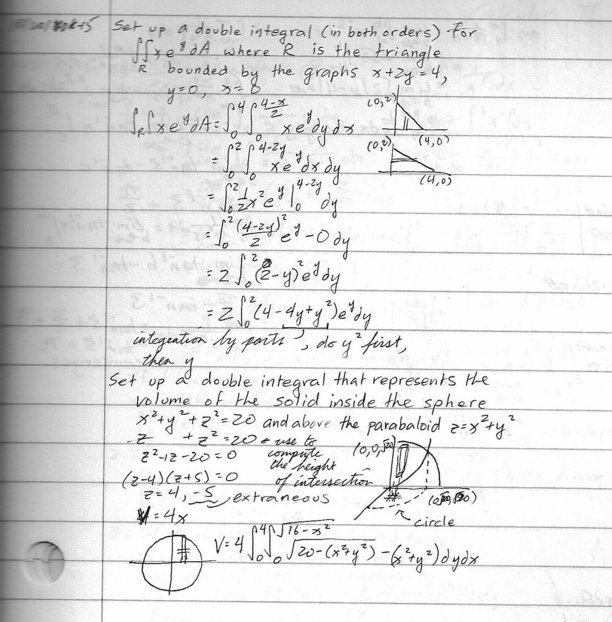 Set up a double integral (in both orders) for
∫∫_R xe^y dA where R is the triangle
bounded by the graphs x+2y=4,
y=0, x=0
∫_R∫ xe^y dA = ∫_0^4 ∫_0^{(4-x)/2} xe^y dy dx
(0,2)
(4,0)
= ∫_0^2 ∫_0^{4-2y} xe^y dx dy
(0,2)
(4,0)
= ∫_0^2 1/2 x^2 e^y |_0^{4-2y} dy
= ∫_0^2 (4-2y)^2/2 e^y - 0 dy
= 2∫_0^2 (2-y)^2 e^y dy
= 2∫_0^2 (4-4y+y^2)e^y dy
integration by parts, do y^2 first,
then y
Set up a double integral that represents the
volume of the solid inside the sphere
x^2+y^2+z^2=20 and above the parabaloid z=x^2+y^2
z + z^2 = 20 ← use to
z^2+z-20=0 compute
the height
(z-4)(z+5)=0 of intersection
z=4, -5 extraneous
(0,0,√20)
= 4x
circle
V= 4 ∫_0^4 ∫_0^{√16-x^2} √20-(x^2+y^2) - (x^2+y^2) dy dx